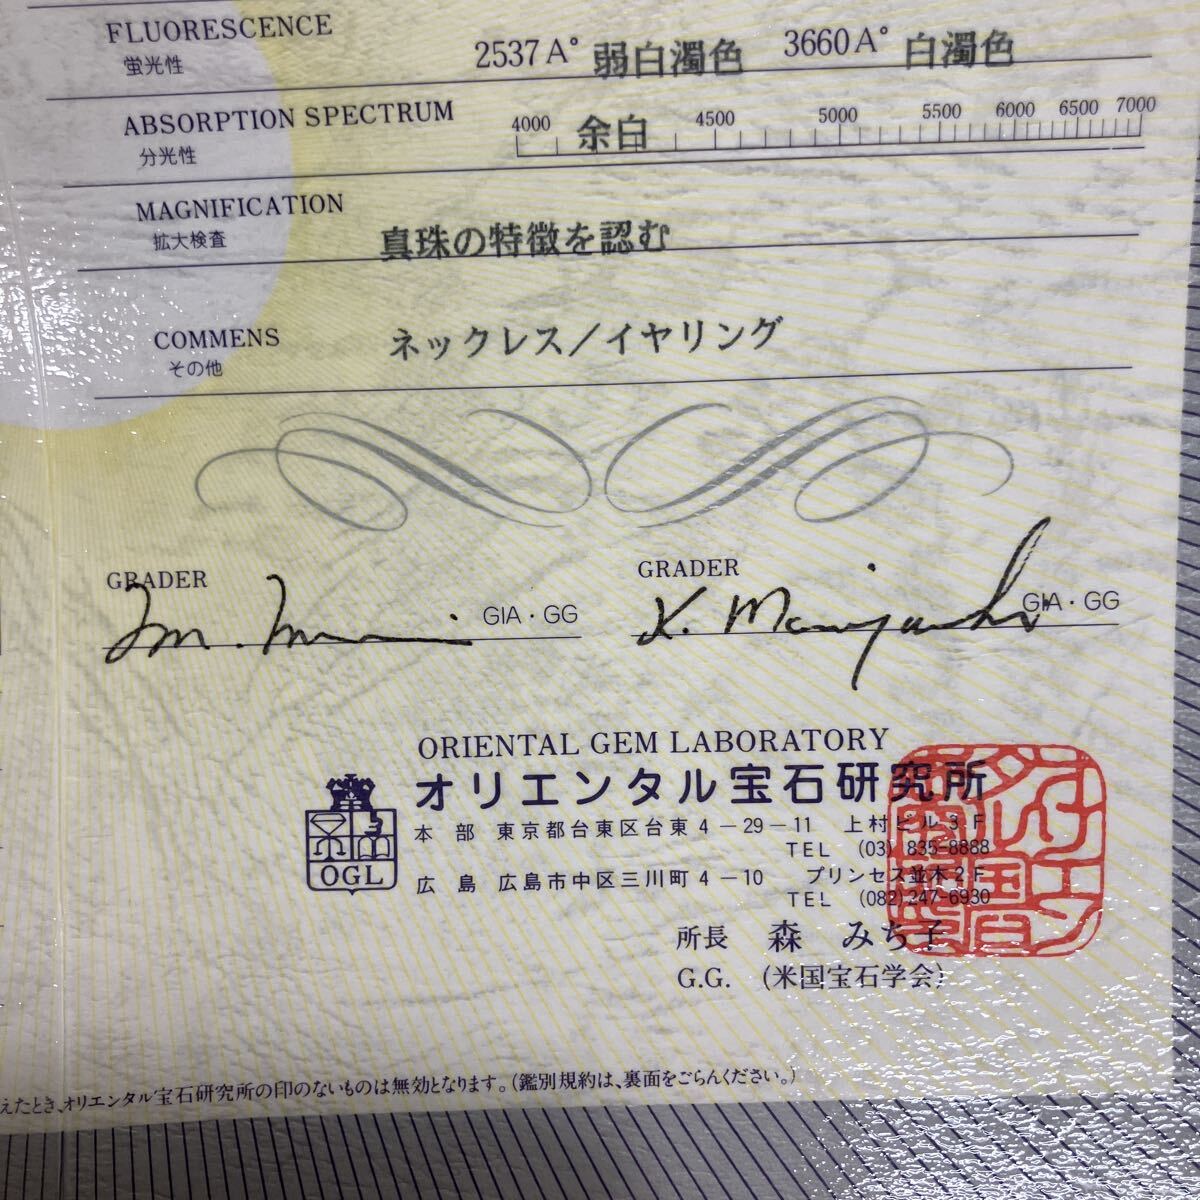 FLUORESCENCE
蛍光性
2537A° 弱白濁色 3660A° 白濁色
ABSORPTION SPECTRUM
分光性
4000 余白 4500 5000 5500 6000 6500 7000
MAGNIFICATION
拡大検査
真珠の特徴を認む
COMMENS
その他
ネックレス/イヤリング
GRADER
GIA・GG
GRADER
K.
GIA・GG
ORIENTAL GEM LABORATORY
オリエンタル宝石研究所
本 部 東京都台東区台東4-29-11 上村ビル3F
TEL (03) 835-8888
広 島 広島市中区三川町4-10 プリンセス並木2F
TEL (082)247-6930
OGL
所長 森 みち子
G.G. (米国宝石学会)
えたとき、オリエンタル宝石研究所の印のないものは無効となります。(鑑別規約は、裏面をごらんください。)